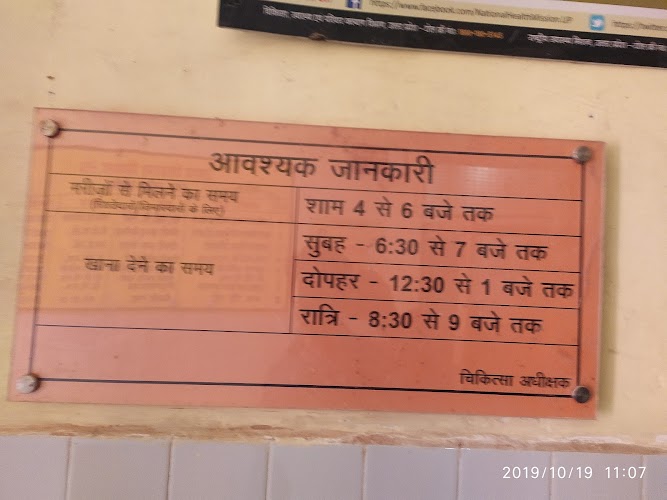 https://www.facebook.com/NationalHealthMission.UP
https://twitter.
चिकित्सा, स्वास्थ्य एवं परिवार कल्याण विभाग, उत्तर प्रदेश
राष्ट्रीय स्वास्थ्य मिशन, उत्तर प्रदेश
आवश्यक जानकारी
मरीज़ों से मिलने का समय
शाम 4 से 6 बजे तक
खाना देने का समय
सुबह - 6:30 से 7 बजे तक
दोपहर - 12:30 से 1 बजे तक
रात्रि - 8:30 से 9 बजे तक
चिकित्सा अधीक्षक
2019/10/19 11:07